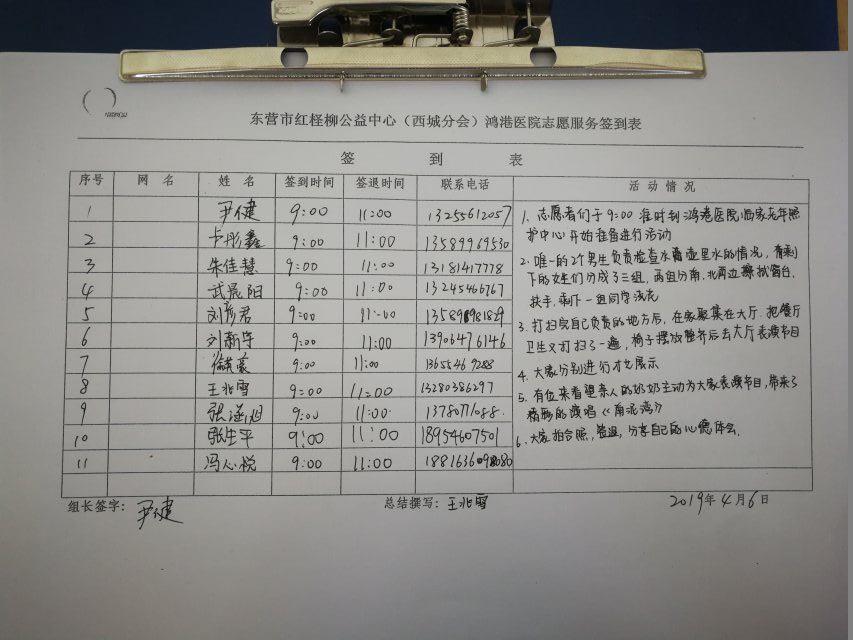 东营市红柽柳公益中心（西城分会）鸿港医院志愿服务签到表
签 到 表
序号 网 名 姓 名 签到时间 签退时间 联系电话 活 动 情 况
1 尹健 9:00 11:00 13255612057
2 卢彤鑫 9:00 11:00 13589969530
3 朱佳慧 9:00 11:00 13181417778
4 武晨阳 9:00 11:00 13245466767
5 刘彦君 9:00 11:00 135896981829
6 刘新宇 9:00 11:00 13906476146
7 9:00 11:00 13655469288
8 王兆雪 9:00 11:00 13280386297
9 张 9:00 11:00 13780771088
10 张生平 9:00 11:00 18954607501
11 冯心悦 9:00 11:00 1881636
1. 志愿者们于9:00准时到鸿港医院 家老年照
护中心开始准备进行活动
2. 唯一的2个男生负责检查水 壶里水的情况，剩
下的女生们分成了三组，两组分南、北两边擦拭窗台、
扶手，剩下一组同学浇花
3. 打扫完自己负责的地方后，在家聚集在大厅，把餐厅
卫生又打扫了一遍，椅子摆放整齐后去大厅表演节目
4. 大家分别进行才艺展示
5. 有位来看望亲人的奶奶主动为大家表演节目，带来了
精彩的演唱《南泥湾》
6. 大家拍合照，签退，分享自己的心得体会。
组长签字： 尹健 总结撰写：王兆雪 2019年4月6日